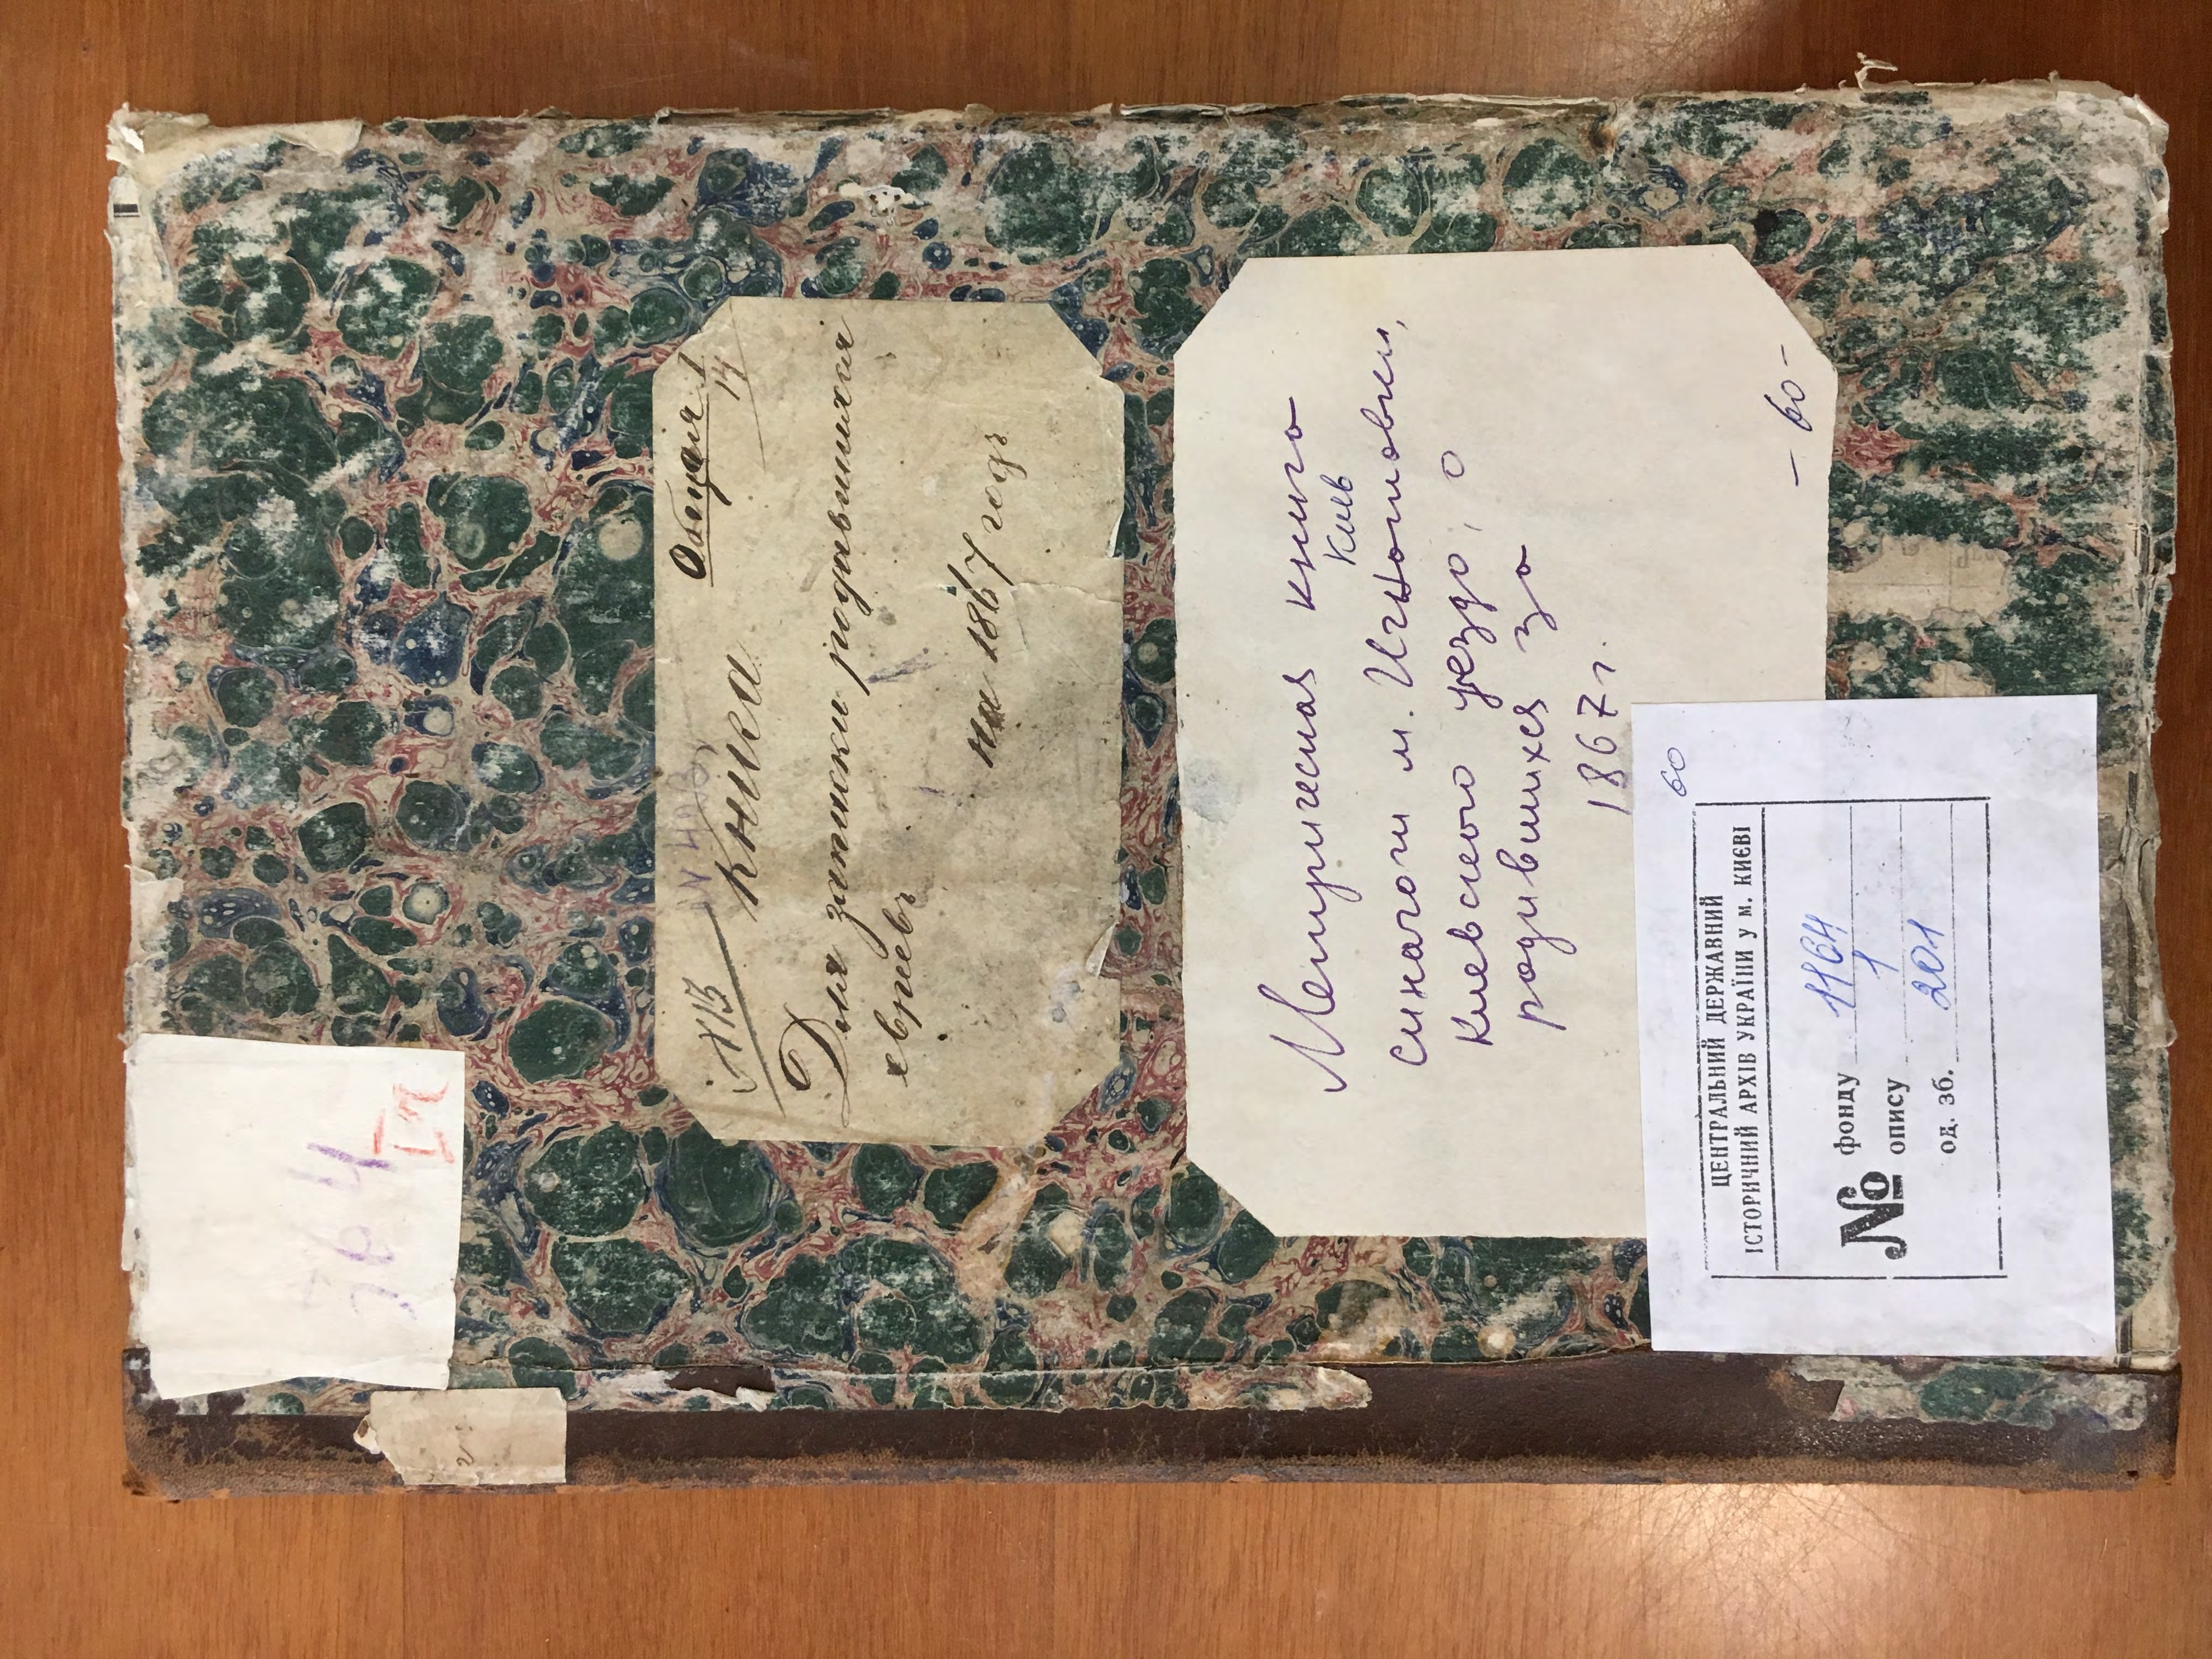 764
Общая 1
14
№13
Книга
Для записки родившихся
евреевъ
на 1867 годъ
Метрическая книга
Киев
синагоги м. Игнатовки,
Киевского уезда, о
родившихся за
1867 г.
- 60 -
60
ЦЕНТРАЛЬНИЙ ДЕРЖАВНИЙ
ІСТОРИЧНИЙ АРХІВ УКРАЇНИ у м. КИЄВІ
№ фонду 1164
опису 1
од. зб. 201